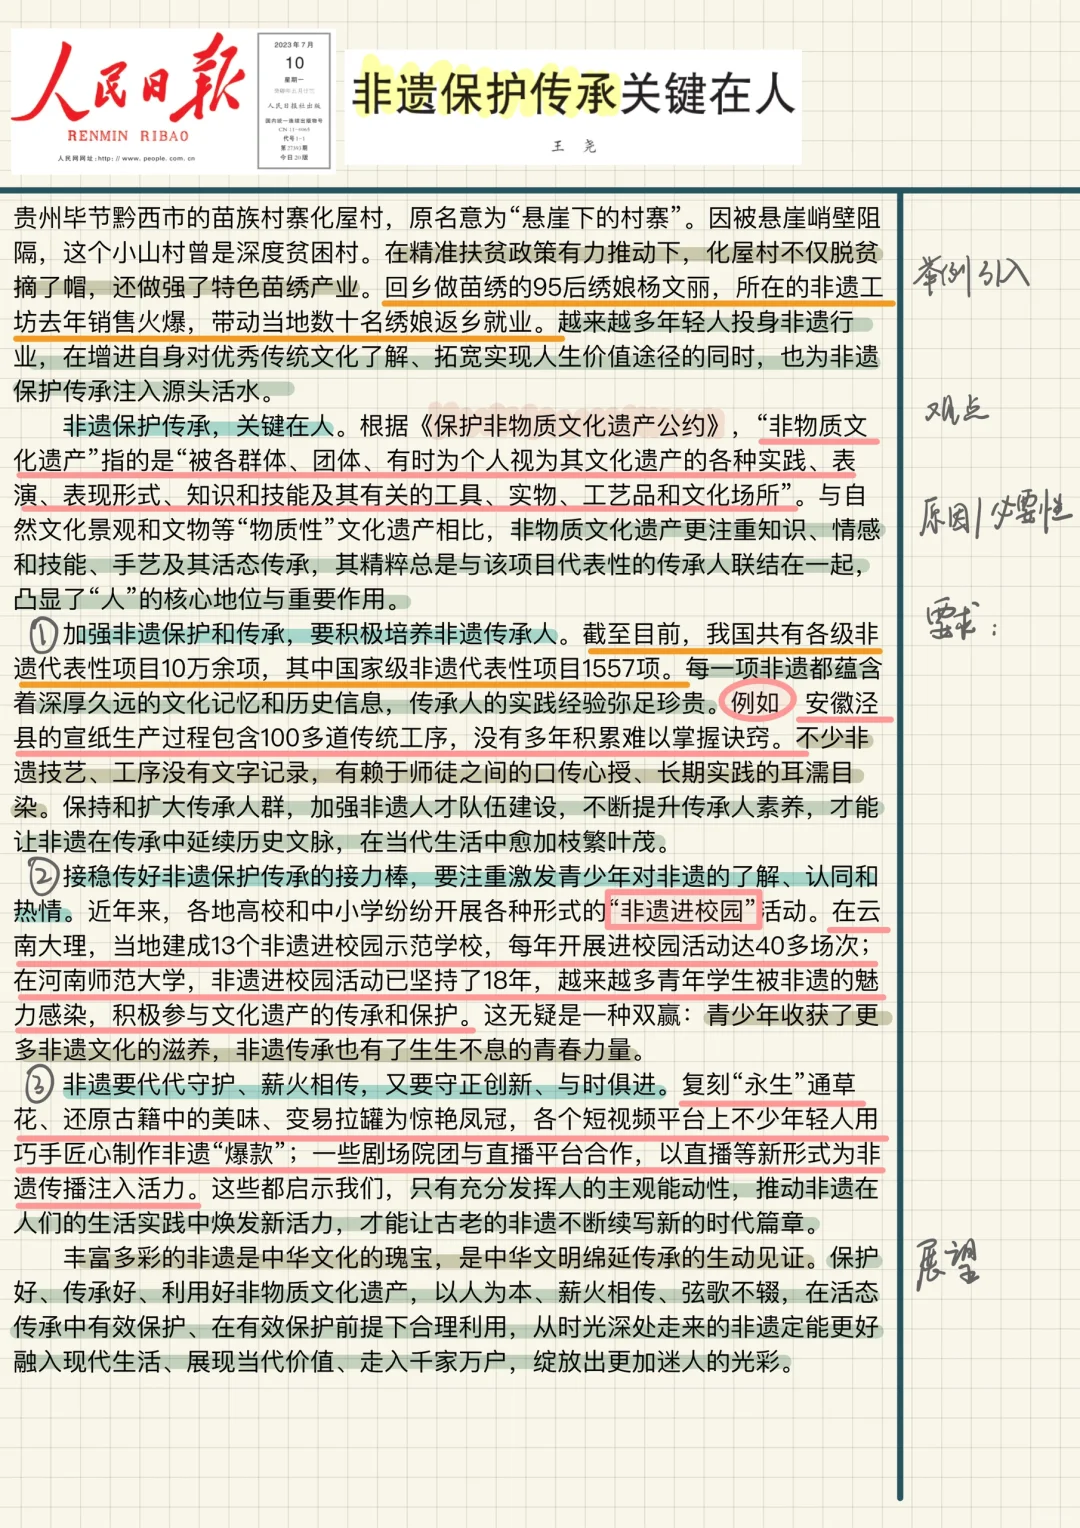 人民日报
RENMIN RIBAO
人民网网址:http://www.people.com.cn
2023年7月
10
星期一
人民日报社出版
国内统一连续出版物号
CN 11-0065
代号1-1
第27393期
今日20版
非遗保护传承关键在人
王 尧
贵州毕节黔西市的苗族村寨化屋村，原名意为“悬崖下的村寨”。因被悬崖峭壁阻
隔，这个小山村曾是深度贫困村。在精准扶贫政策有力推动下，化屋村不仅脱贫
摘了帽，还做强了特色苗绣产业。回乡做苗绣的95后绣娘杨文丽，所在的非遗工
坊去年销售火爆，带动当地数十名绣娘返乡就业。越来越多年轻人投身非遗行
业，在增进自身对优秀传统文化了解、拓宽实现人生价值途径的同时，也为非遗
保护传承注入源头活水。
举例引入
非遗保护传承，关键在人。根据《保护非物质文化遗产公约》，“非物质文
化遗产”指的是“被各群体、团体、有时为个人视为其文化遗产的各种实践、表
演、表现形式、知识和技能及其有关的工具、实物、工艺品和文化场所”。与自
然文化景观和文物等“物质性”文化遗产相比，非物质文化遗产更注重知识、情感
和技能、手艺及其活态传承，其精粹总是与该项目代表性的传承人联结在一起，
凸显了“人”的核心地位与重要作用。
观点
原因/必要性
①加强非遗保护和传承，要积极培养非遗传承人。截至目前，我国共有各级非
遗代表性项目10万余项，其中国家级非遗代表性项目1557项。每一项非遗都蕴含
着深厚久远的文化记忆和历史信息，传承人的实践经验弥足珍贵。例如 安徽泾
县的宣纸生产过程包含100多道传统工序，没有多年积累难以掌握诀窍。不少非
遗技艺、工序没有文字记录，有赖于师徒之间的口传心授、长期实践的耳濡目
染。保持和扩大传承人群，加强非遗人才队伍建设，不断提升传承人素养，才能
让非遗在传承中延续历史文脉，在当代生活中愈加枝繁叶茂。
需求：
②接稳传好非遗保护传承的接力棒，要注重激发青少年对非遗的了解、认同和
热情。近年来，各地高校和中小学纷纷开展各种形式的“非遗进校园”活动。在云
南大理，当地建成13个非遗进校园示范学校，每年开展进校园活动达40多场次；
在河南师范大学，非遗进校园活动已坚持了18年，越来越多青年学生被非遗的魅
力感染，积极参与文化遗产的传承和保护。这无疑是一种双赢：青少年收获了更
多非遗文化的滋养，非遗传承也有了生生不息的青春力量。
③非遗要代代守护、薪火相传，又要守正创新、与时俱进。复刻“永生”通草
花、还原古籍中的美味、变易拉罐为惊艳凤冠，各个短视频平台上不少年轻人用
巧手匠心制作非遗“爆款”；一些剧场院团与直播平台合作，以直播等新形式为非
遗传播注入活力。这些都启示我们，只有充分发挥人的主观能动性，推动非遗在
人们的生活实践中焕发新活力，才能让古老的非遗不断续写新的时代篇章。
丰富多彩的非遗是中华文化的瑰宝，是中华文明绵延传承的生动见证。保护
好、传承好、利用好非物质文化遗产，以人为本、薪火相传、弦歌不辍，在活态
传承中有效保护、在有效保护前提下合理利用，从时光深处走来的非遗定能更好
融入现代生活、展现当代价值、走入千家万户，绽放出更加迷人的光彩。
展望